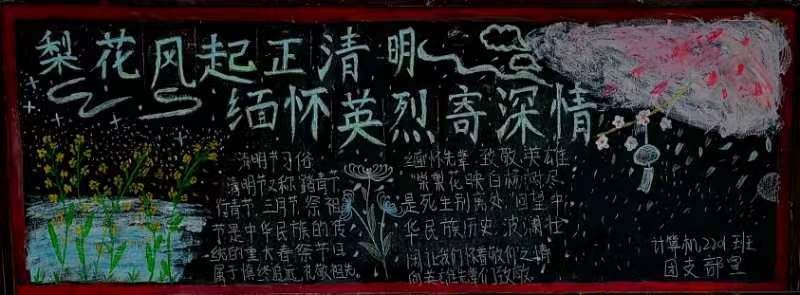 梨花风起正清明
缅怀英烈寄深情
清明节习俗
清明节又称踏青节
行青节、三月节、祭祖
节是中华民族的传
统的重大春祭节日
属于慎终追远、礼敬祖先
缅怀先辈 致敬英雄
棠梨花映白杨
尽是死生别离处 回望中
华民族历史 波澜壮
阔 让我们怀着敬仰之情
向英雄先辈们致敬
计算机2201班
团支部宣